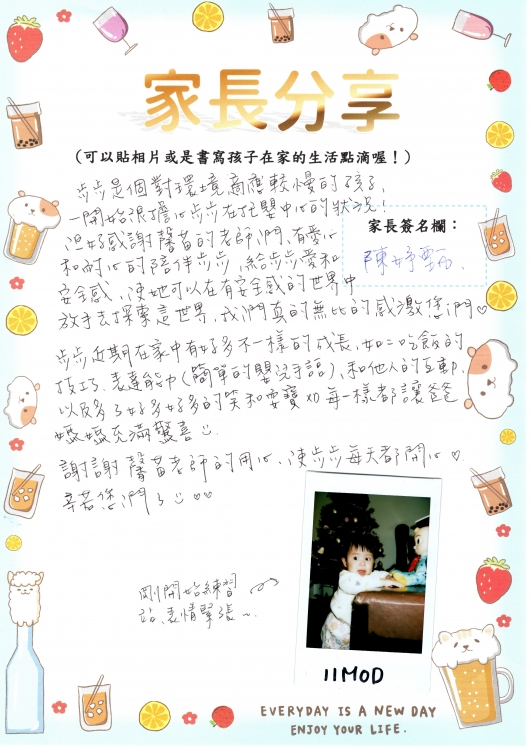 家長分享
(可以貼相片或是書寫孩子在家的生活點滴喔！)
步步是個對環境適應較慢的孩子，
一開始很擔心步步在托嬰中心的狀況！
但好感謝馨苗的老師們，有愛心
和耐心的陪伴步步，給步步愛和
安全感，使她可以在有安全感的世界中
放手去探索這世界，我們真的無比的感激您們♡
家長簽名欄：
陳妤甄
步步近期在家中有好多不一樣的成長，如：吃飯的
技巧、表達能力(簡單的嬰兒手語)、和他人的互動，
以及多了好多好多的笑和耍寶，每一樣都讓爸爸
媽媽充滿驚喜☺
謝謝馨苗老師的用心，使步步每天都開心♡
辛苦您們了☺♡♡
剛開始練習
站，表情緊張~
11MOD
EVERYDAY IS A NEW DAY
ENJOY YOUR LIFE.